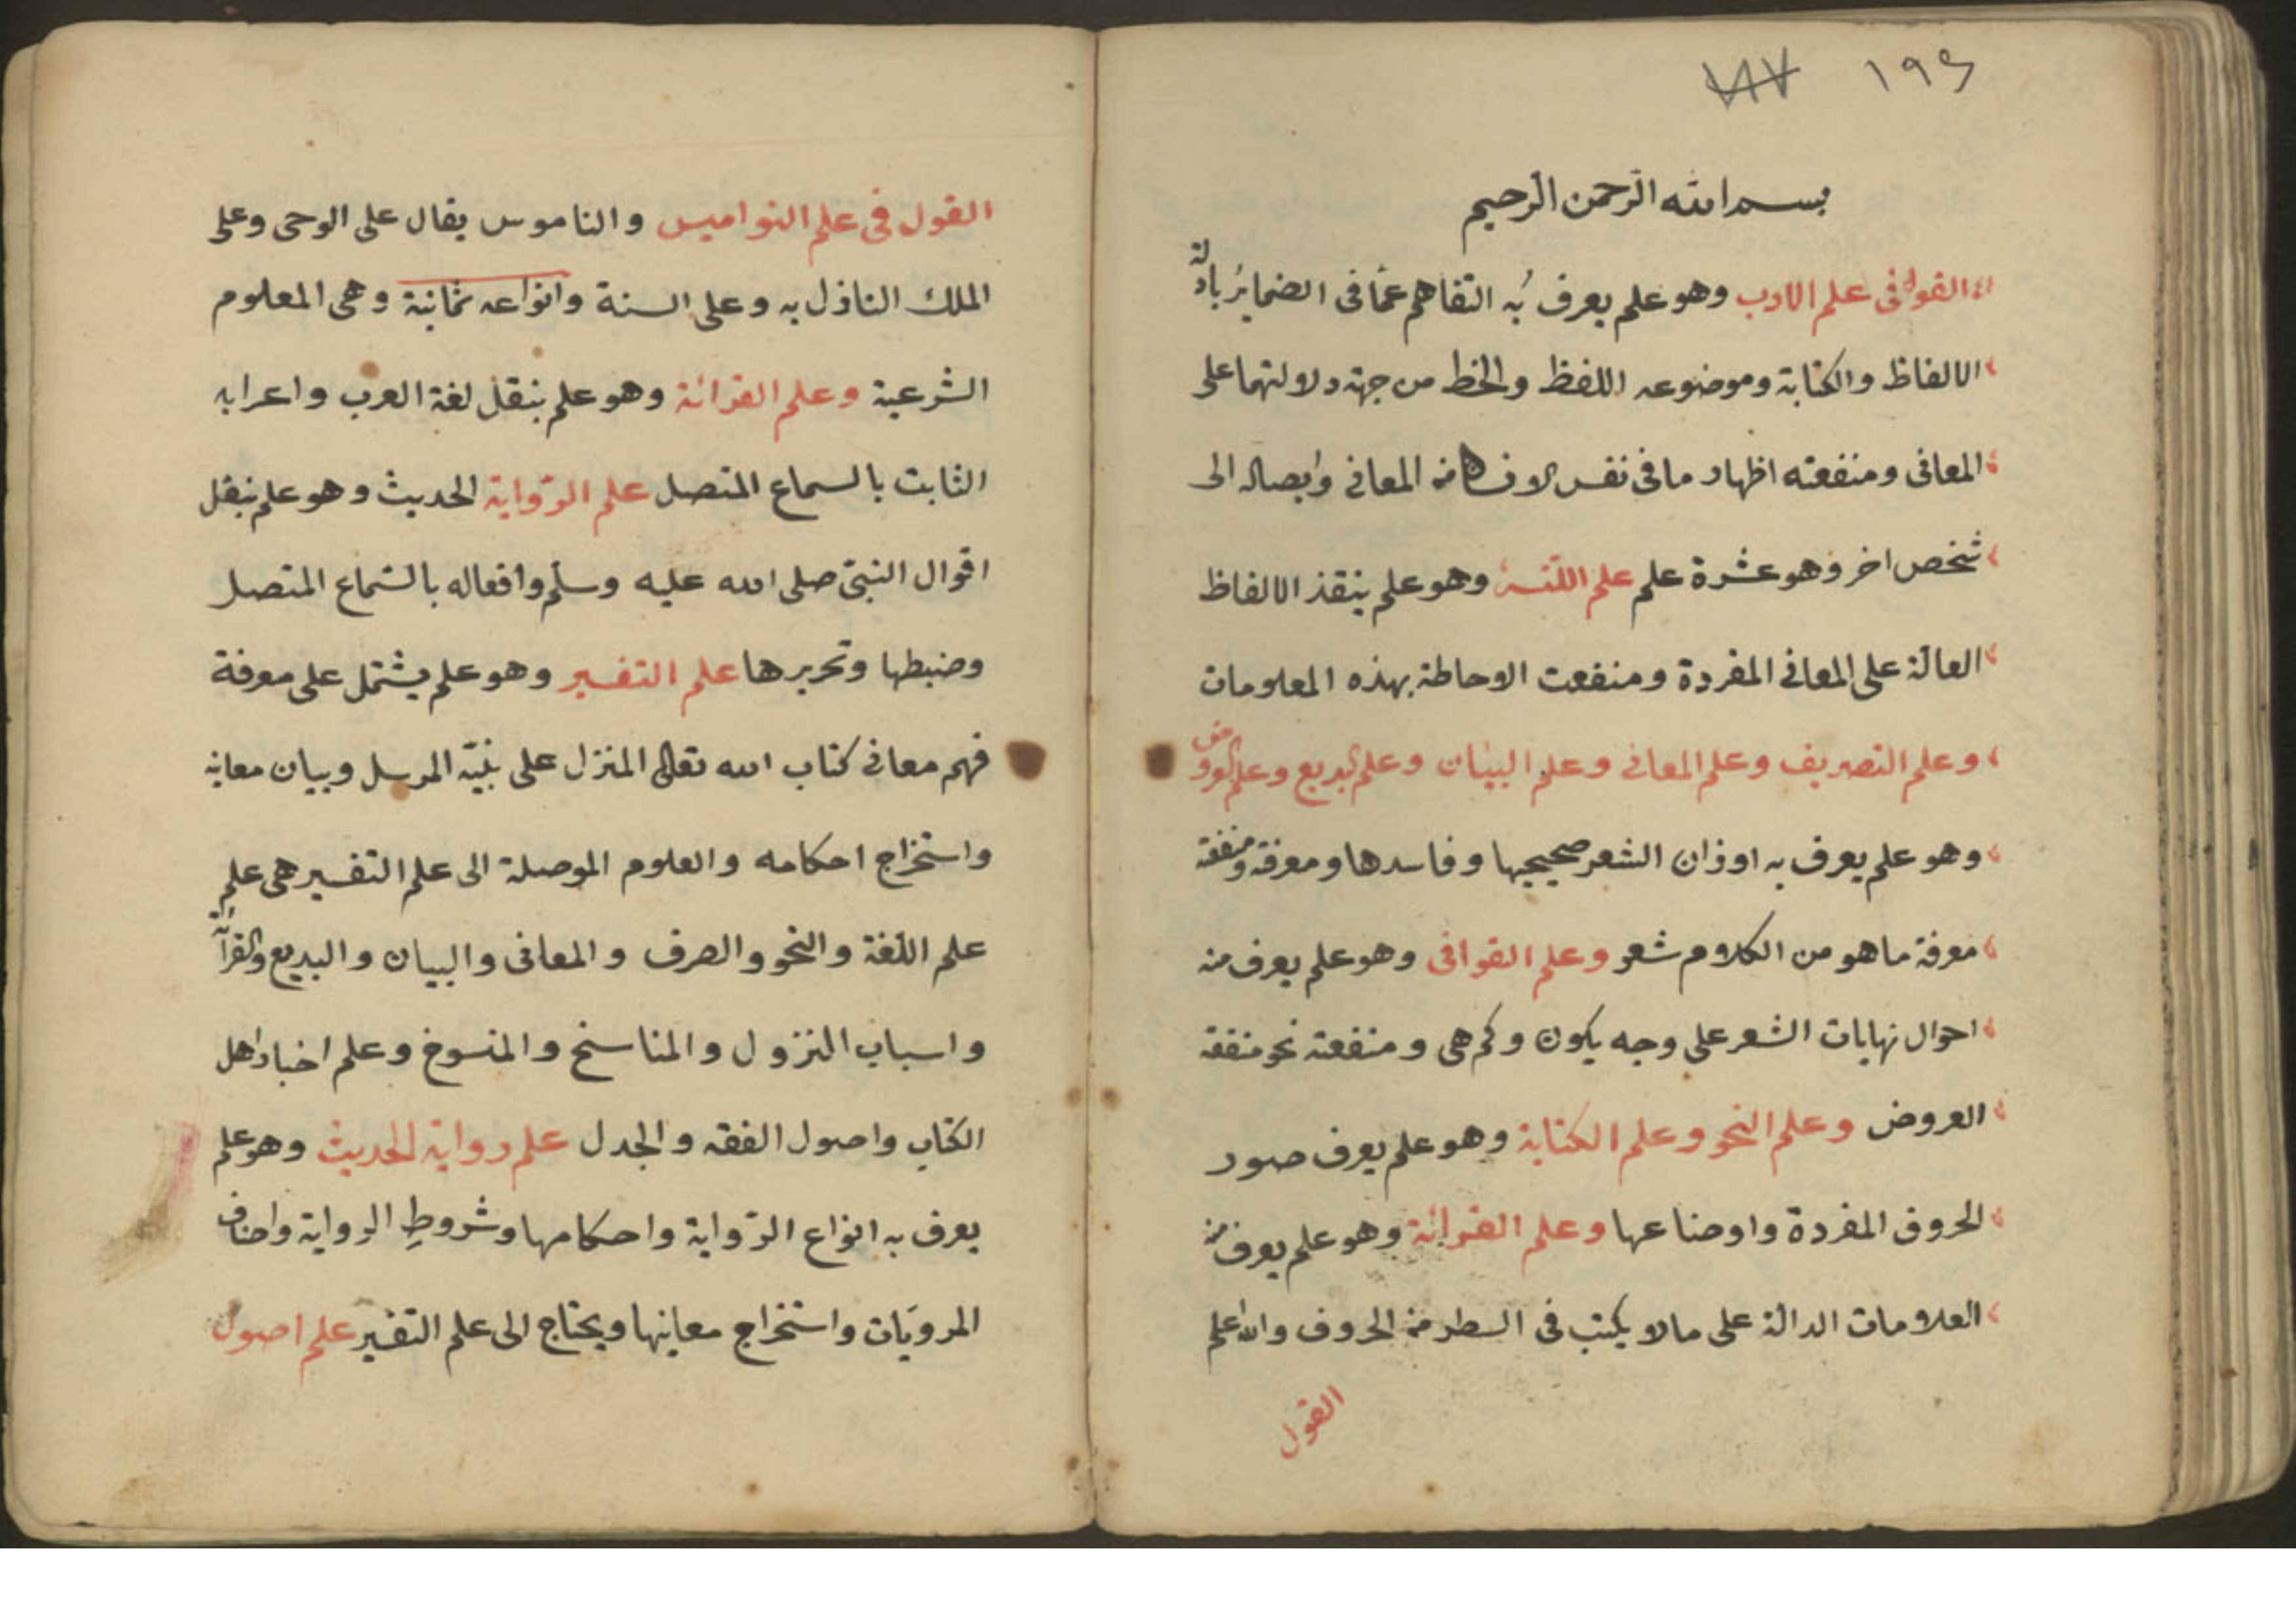 ١٩٤
بسم الله الرحمن الرحيم
القول فى علم الادب وهو علم يعرف به التفاهم عما فى الضمائر بادلة
الالفاظ والكتابة وموضوعه اللفظ والخط من جهة دلالتهما على
المعانى ومنفعته اظهار ما فى نفس الانسان من المعانى وايصاله الى
شخص اخر وهو عشرة علم علم اللغة وهو علم ينقذ الالفاظ
الدالة على المعانى المفردة ومنفعت الاحاطة بهذه المعلومات
وعلم التصريف وعلم المعانى وعلم البيان وعلم البديع وعلم العروض
وهو علم يعرف به اوزان الشعر صحيحيها وفاسدها ومعرفة ومنفعة
معرفة ما هو من الكلام شعر وعلم القوافى وهو علم يعرف منه
احوال نهايات الشعر على وجه يكون وكم هى ومنفعته نحو منفعة
العروض وعلم النحو وعلم الكتابة وهو علم يعرف صور
الحروف المفردة واوضاعها وعلم القرائة وهو علم يعرف منه
العلامات الدالة على ما لا يكتب فى السطر من الحروف والله اعلم
القول
القول فى علم النواميس والناموس يقال على الوحى وعلى
الملك النازل به وعلى السنة وانواعه ثمانية وهى المعلوم
الشرعية وعلم القرائة وهو علم بنقل لغة العرب واعرابه
الثابت بالسماع المتصل علم الرواية الحديث وهو علم بنقل
اقوال النبىّ صلى الله عليه وسلم وافعاله بالسّماع المتصل
وضبطها وتحريرها علم التفسير وهو علم يشتمل على معرفة
فهم معانى كتاب الله تعالى المنزل على نبيّه المرسل وبيان معانيه
واستخراج احكامه والعلوم الموصلة الى علم التفسير هى علم
علم اللّغة والنحو والصرف والمعانى والبيان والبديع والقرآئة
واسباب النزول والمناسخ والمنسوخ وعلم اخبار اهل
الكتاب واصول الفقه والجدل علم رواية الحديث وهو علم
يعرف به انواع الرّواية واحكامها وشروط الرواية واصناف
المرويّات واستخراج معانيها ويحتاج الى علم التفسير علم اصول